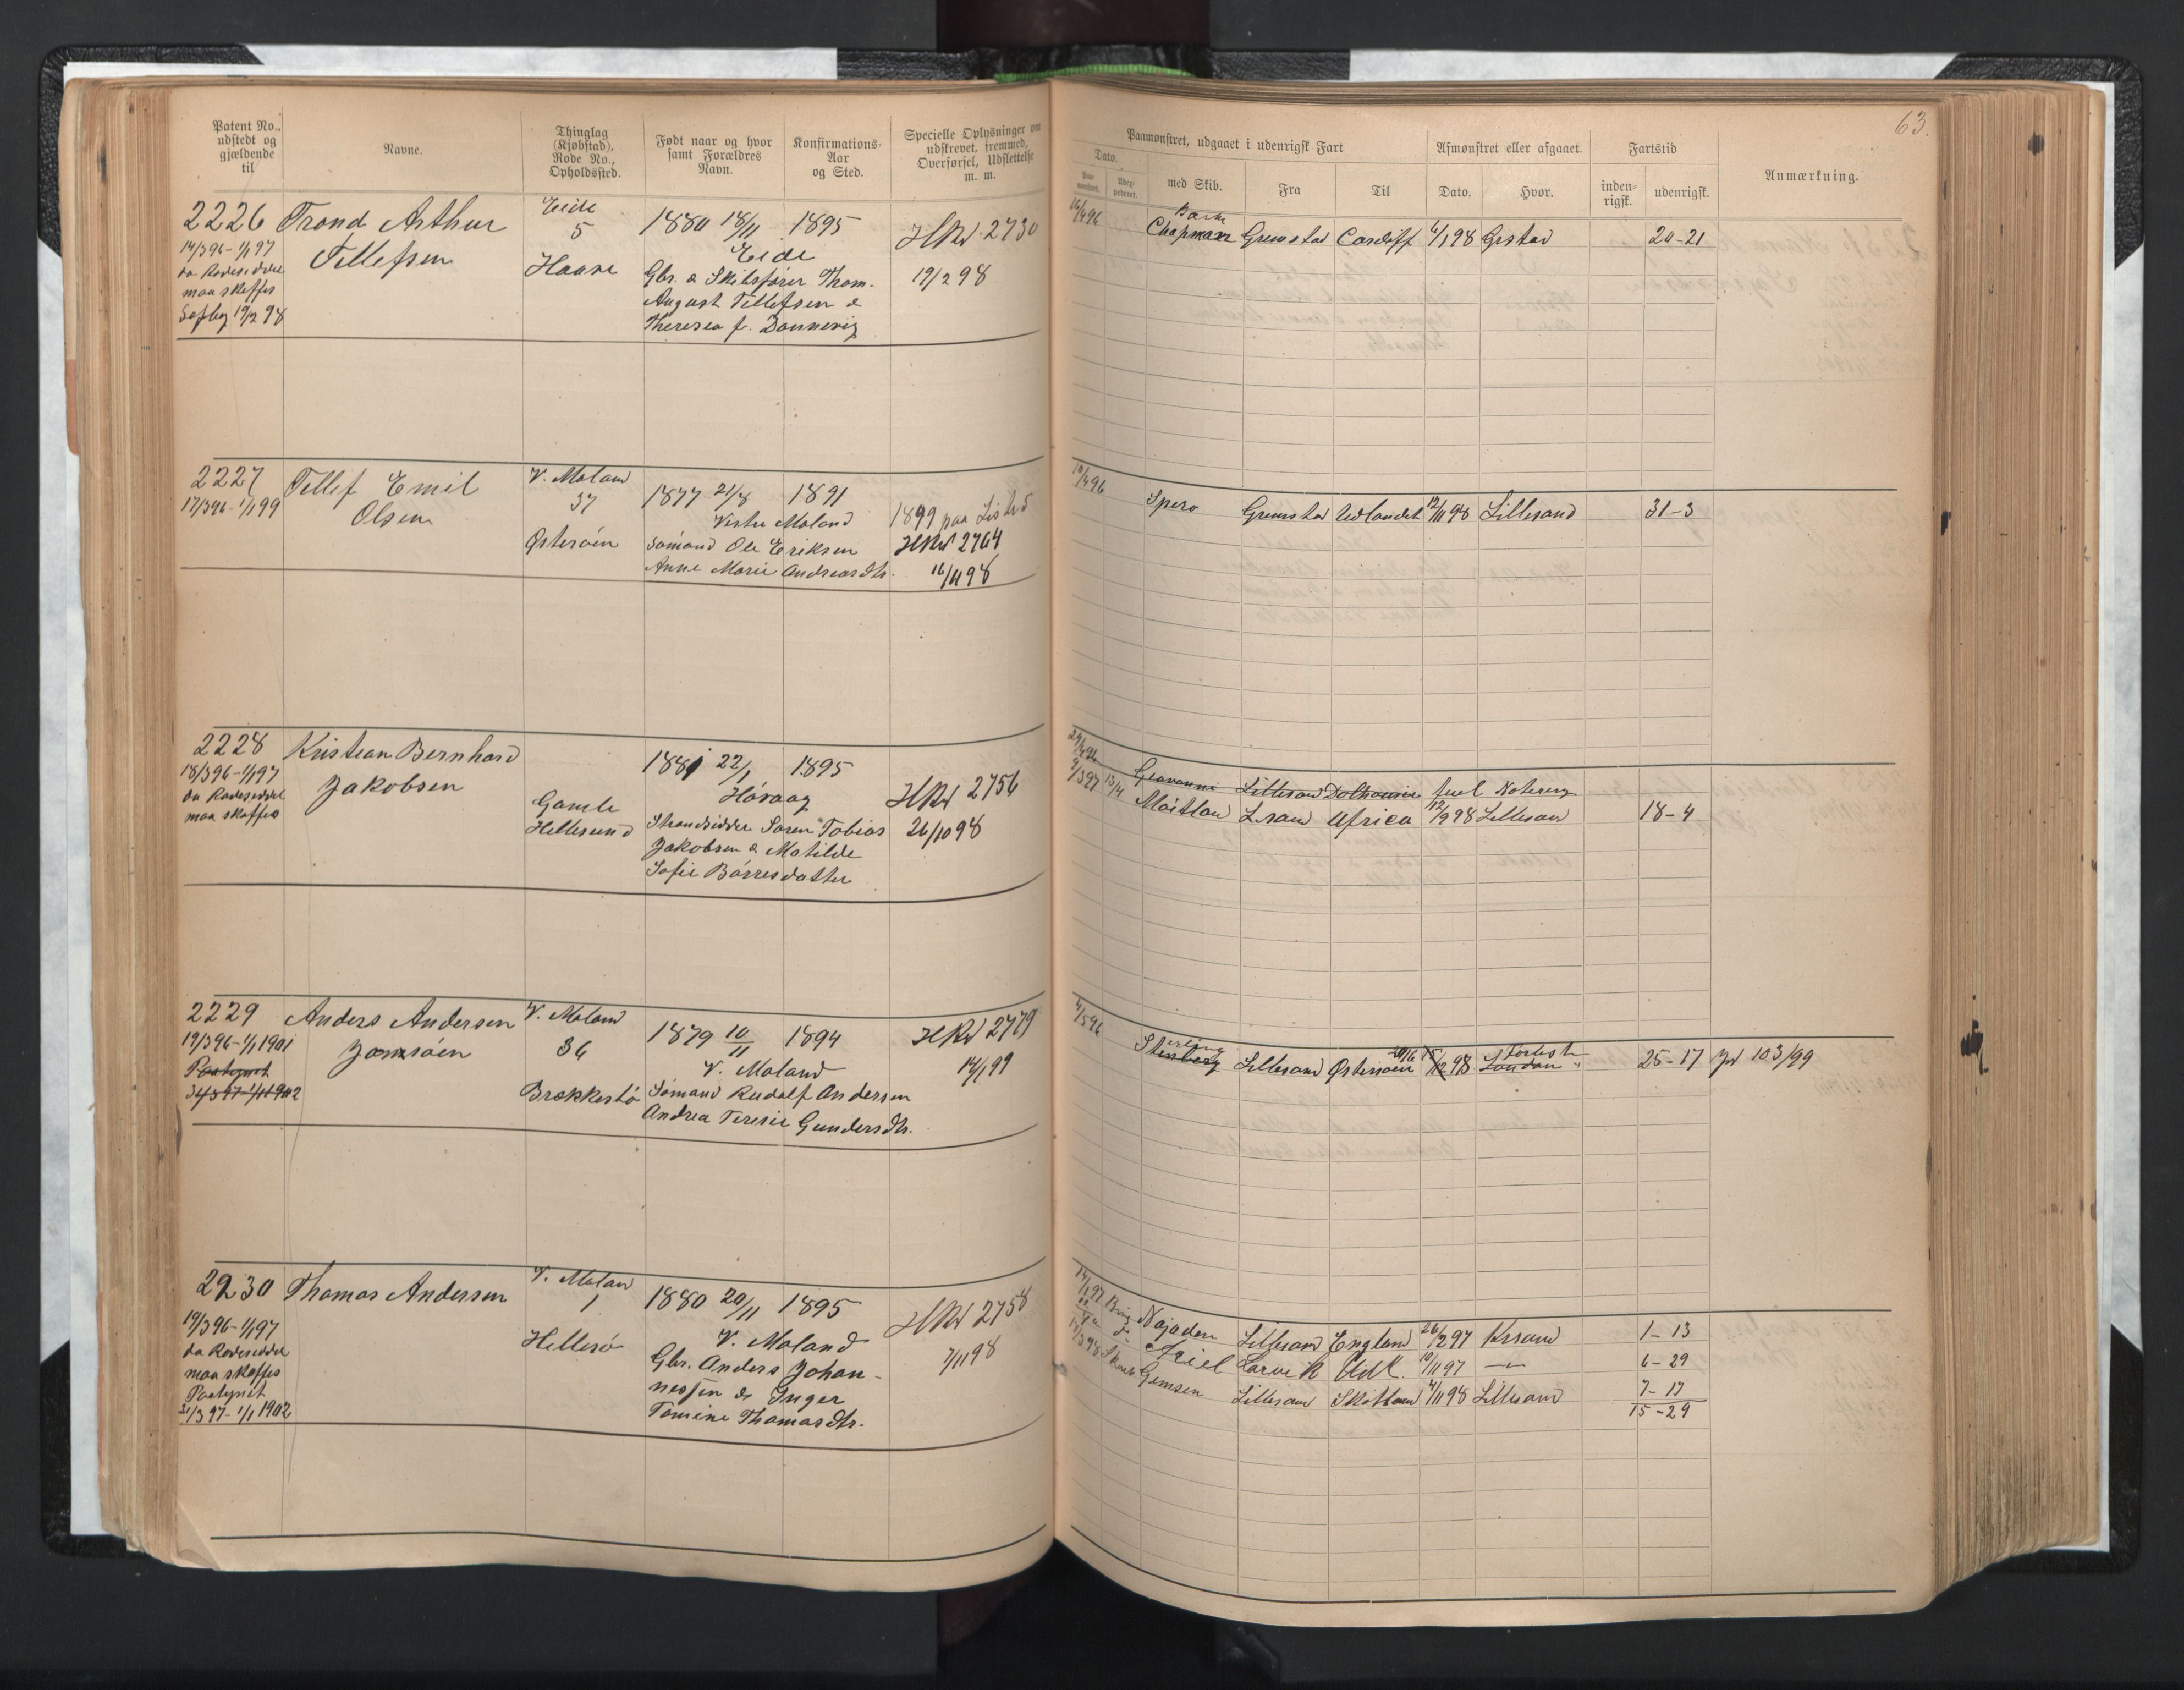 63.
Patent No., udstedt og gjældende til
Navne.
Thinglag (Kjøbstad), Rode No., Opholdssted.
Født naar og hvor samt Forældres Navn.
Konfirmations-Aar og Sted.
Specielle Oplysninger om udskrevet, fremmed, Overførsel, Udslettelse m. m.
Paamønstret, udgaaet i udenrigsk Fart
Dato.
med Skib.
Fra
Til
Afmønstret eller afgaaet.
Dato.
Hvor.
Fartstid
inden-rigsk.
udenrigsk.
Anmærkning.
2226 Trond Arthur
Tellefsen
14/3 96 - 1/1 97
da Rodeseddel
maa skaffes
19/2 98
Eide
5
1880 18/11 1895
Eide
Gbr. & Skibsfører Thom.
August Tellefsen &
Theresea f. Dannevig
HRul 2730
19/2 98
16/4 96 Bark
Chapman Grimstad Cardiff 4/1 98 Grstad 20-21
2227 Tellef Emil
Olsen
17/3 96 - 1/1 99
V. Moland
37
Østerøen
1877 21/8 1891
Vestre Moland
Sømand Ole Eriksen
Anne Marie Andreasdtr.
1899 paa Listed
HRul 2764
16/11 98
10/4 96 Spero Grimstad Udlandet 12/11 98 Lillesand 31-3
2228 Kristian Bernhard
Jakobsen
18/3 96 - 1/1 97
da Rodeseddel
maa skaffes
Gamle
Hellesund
1881 22/1 1895
Høvaag
Strandsidder Søren Tobias
Jakobsen & Matilde
Sofie Børresdatter
HRul 2756
26/10 98
29/4 96 Giovanni Lillesand Dalhousie feil Notering
9/3 97 13/4 Maitland L.sand Africa 12/9 98 Lillesand 18-4
2229 Anders Andersen
Jonsøen
19/3 96 - 1/1 1901
Paategnet
V. Moland
36
Brækkestø
1879 10/11 1894
V. Moland
Sømand Rudolf Andersen
Andrea Teresie Gundersdtr.
HRul 2779
14/1 99
4/5 96 Sterling Lillesand Østersøen London 25-17 Jnl 103/99
2230 Thomas Andersen
19/3 96 - 1/1 97
da Rodeseddel
maa skaffes
Paategnet
31/3 97 - 1/1 1902
V. Moland
1
Hellesø
1880 20/11 1895
V. Moland
Gbr. Anders Johan-
nessen & Inger
Tomine Thomasdtr.
HRul 2758
7/11 98
14/1 97 Brig Najaden Lillesand England 26/2 97 Krsand 1-13
Ariel Larvik Udl. 10/11 97 — 6-29
Gemsen Lillesand Skotland 4/11 98 Lillesand 7-17
15-29